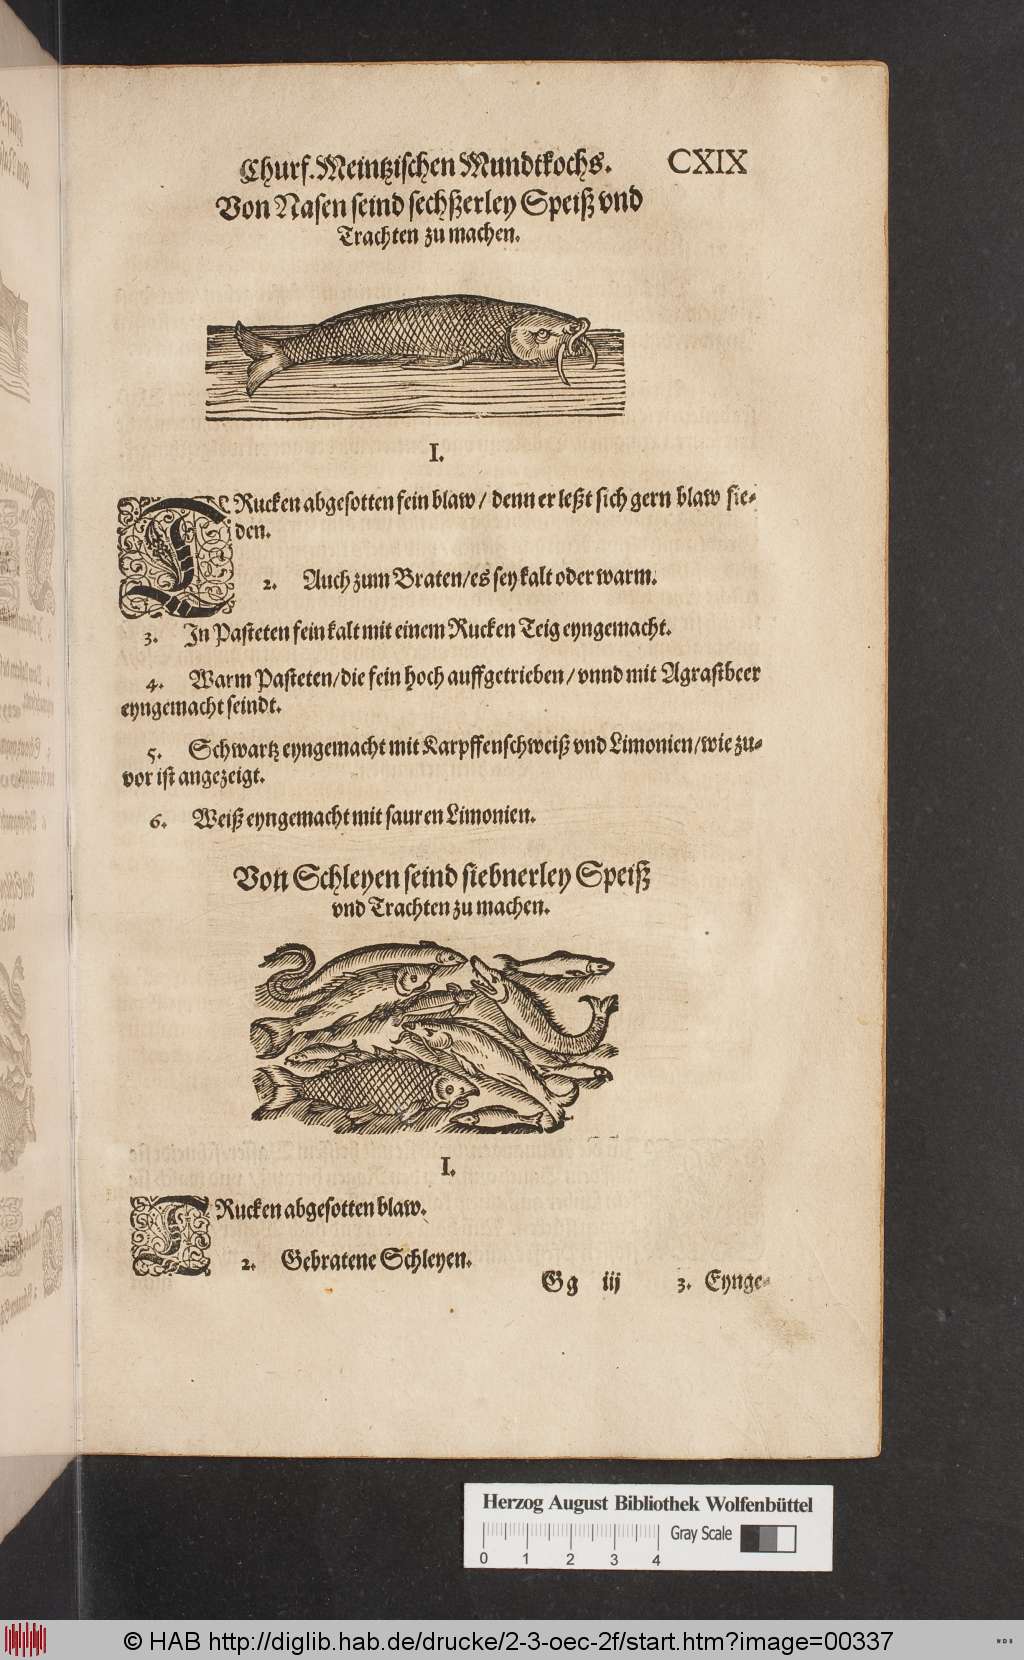 Churf. Meintzischen Mundtkochs. CXIX
Von Nasen seind sechßerley Speiß vnd
Trachten zu machen.
I.
TRucken abgesotten fein blaw / denn er leßt sich gern blaw sie-
den.
2. Auch zum Braten / es sey kalt oder warm.
3. In Pasteten fein kalt mit einem Rucken Teig eyngemacht.
4. Warm Pasteten / die fein hoch auffgetrieben / vnnd mit Agrastbeer
eyngemacht seindt.
5. Schwartz eyngemacht mit Karpffenschweiß vnd Limonien / wie zu-
vor ist angezeigt.
6. Weiß eyngemacht mit sauren Limonien.
Von Schleyen seind siebnerley Speiß
vnd Trachten zu machen.
I.
TRucken abgesotten blaw.
2. Gebratene Schleyen.
Gg iij 3. Eynge-
Herzog August Bibliothek Wolfenbüttel
Gray Scale
0 1 2 3 4
© HAB http://diglib.hab.de/drucke/2-3-oec-2f/start.htm?image=00337